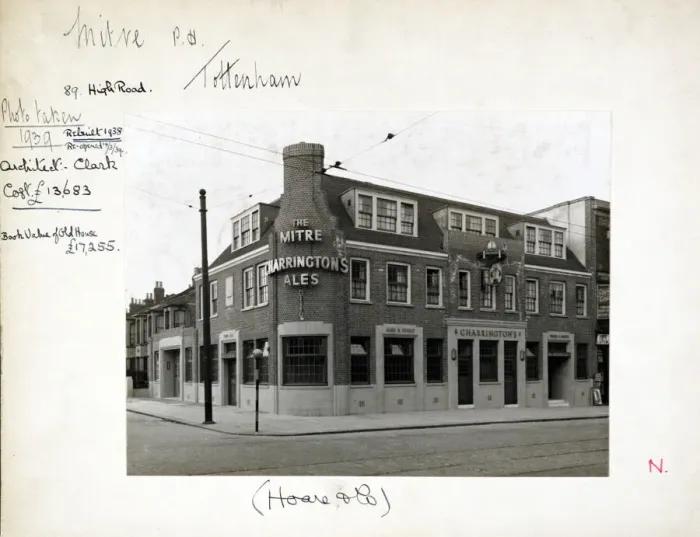 Mitre P.H.
Tottenham
89. High Road.
Photo taken
1939
Rebuilt 1938
Re-opened
Architect:- Clark
Cost £13,683
Book Value of Old House
£17,255.
THE
MITRE
CHARRINGTON'S
ALES
CHARRINGTON'S
(Hoare & Co)
N.